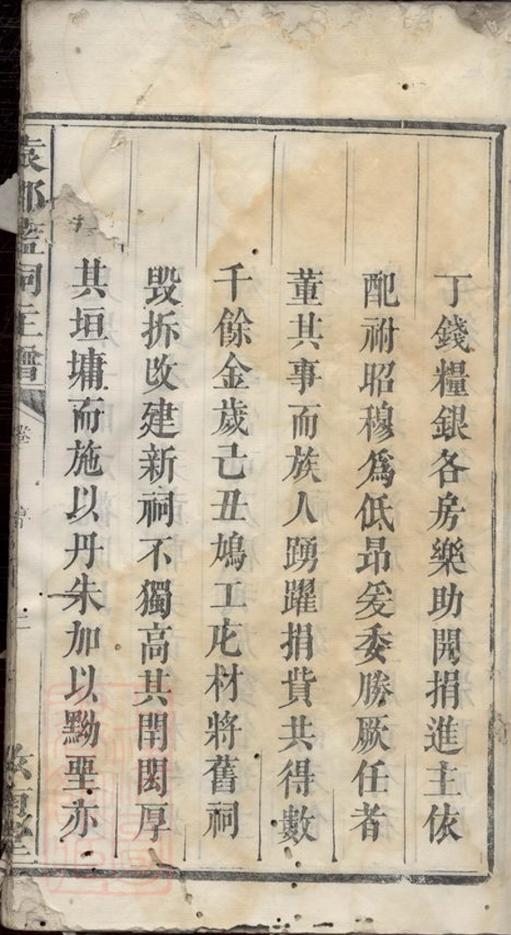 丁錢糧銀各房樂助開捐進主依
配祔昭穆爲低昂爰委勝厥任者
董其事而族人踴躍捐貲共得數
千餘金歲己丑鳩工庀材將舊祠
毀拆改建新祠不獨高其閈閎厚
其垣墉而施以丹朱加以黝堊亦
袁郡藍祠主譜
卷